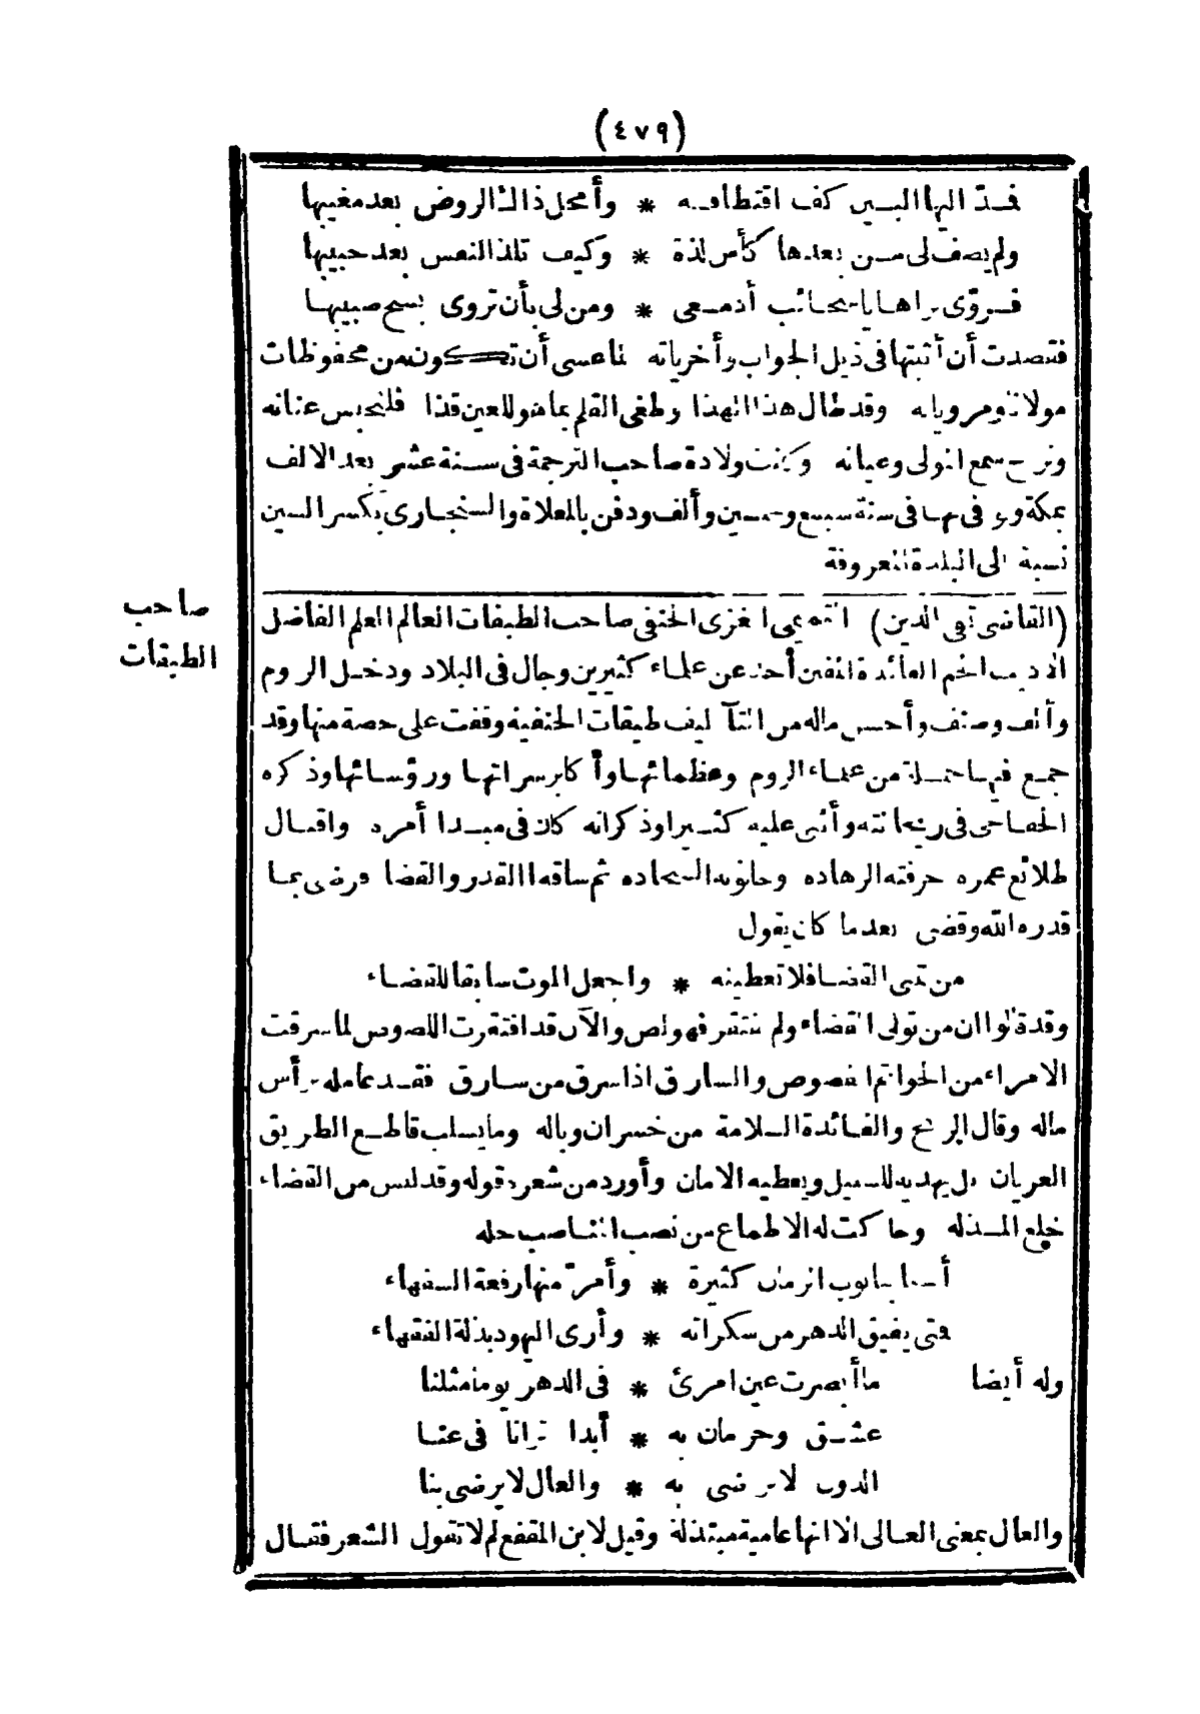 (٤٧٩)
فمدّ اليها البين كف اقتطافه * وأمحل ذاك الروض بعد مغيبها
ولم يصف لى من بعدها كأس لذة * وكيف تلذ النفس بعد حبيبها
فروّى ثراها يا سحائب أدمعى * ومن لى بأن تروى بسح صبيبها
فقصدت أن أثبتها فى ذيل الجواب وأخرياته لما عسى أن تكون من محفوظات
مولانا ومروياته وقد طال هذا الهذا وطغى القلم بما هو للعين قذا فلنحبس عنانه
ونرح سمع المولى وعيانه وكانت ولادة صاحب الترجمة فى سنة عشر بعد الالف
بمكة وتوفى بها فى سنة سبع وخمسين وألف ودفن بالمعلاة والسنجارى بكسر السين
نسبة الى البلدة المعروفة
صاحب
الطبقات
(القاضى تقى الدين) التميمى الغزى الحنفى صاحب الطبقات العالم العلم الفاضل
الاديب الجم الفائدة المفنن أخذ عن علماء كثيرين وجال فى البلاد ودخل الروم
وألف وصنف وأحسن ماله من التآليف طبقات الحنفية وقفت على حصة منها وقد
جمع فيها جملة من علماء الروم وعظمائها وأكابر سراتها ورؤسائها وذكره
الخفاجى فى ريحانته وأثنى عليه كثيرا وذكر انه كان فى مبدا أمره واقبال
طلائع عمره حرفته الزهاده وحانوته السجاده ثم ساقه القدر والقضا فرضى بما
قدره الله وقضى بعدما كان يقول
من تمنى القضا فلا تعطينه * واجعل الموت سابقا للقضاء
وقد قالوا ان من تولى القضاء ولم يفتقر فهو لص والآن قد افتقرت اللصوص لما سرقت
الامراء من الخواتم الفصوص والسارق اذا سرق من سارق فقد عامله برأس
ماله وقال الربح والفائدة السلامة من خسران وباله وما يسلب قاطع الطريق
العريان بل يهديه للسبيل ويعطيه الامان وأورد من شعره قوله وقد لبس من القضاء
خلع المذله وحاكت له الاطماع من نصب المناصب حله
أحبابنا نوب الزمان كثيرة * وأمرّ منها رفعة السفهاء
فمتى يفيق الدهر من سكراته * وأرى اليهود بذلة الفقهاء
وله أيضا ما أبصرت عين امرئ * فى الدهر يوما مثلنا
عشق وحرمان به * أبدا ترانا فى عنا
الدون لا نرضى به * والعال لا يرضى بنا
والعال بمعنى العالى الا انها عامية مبتذلة وقيل لابن المقفع لم لا تقول الشعر فقال